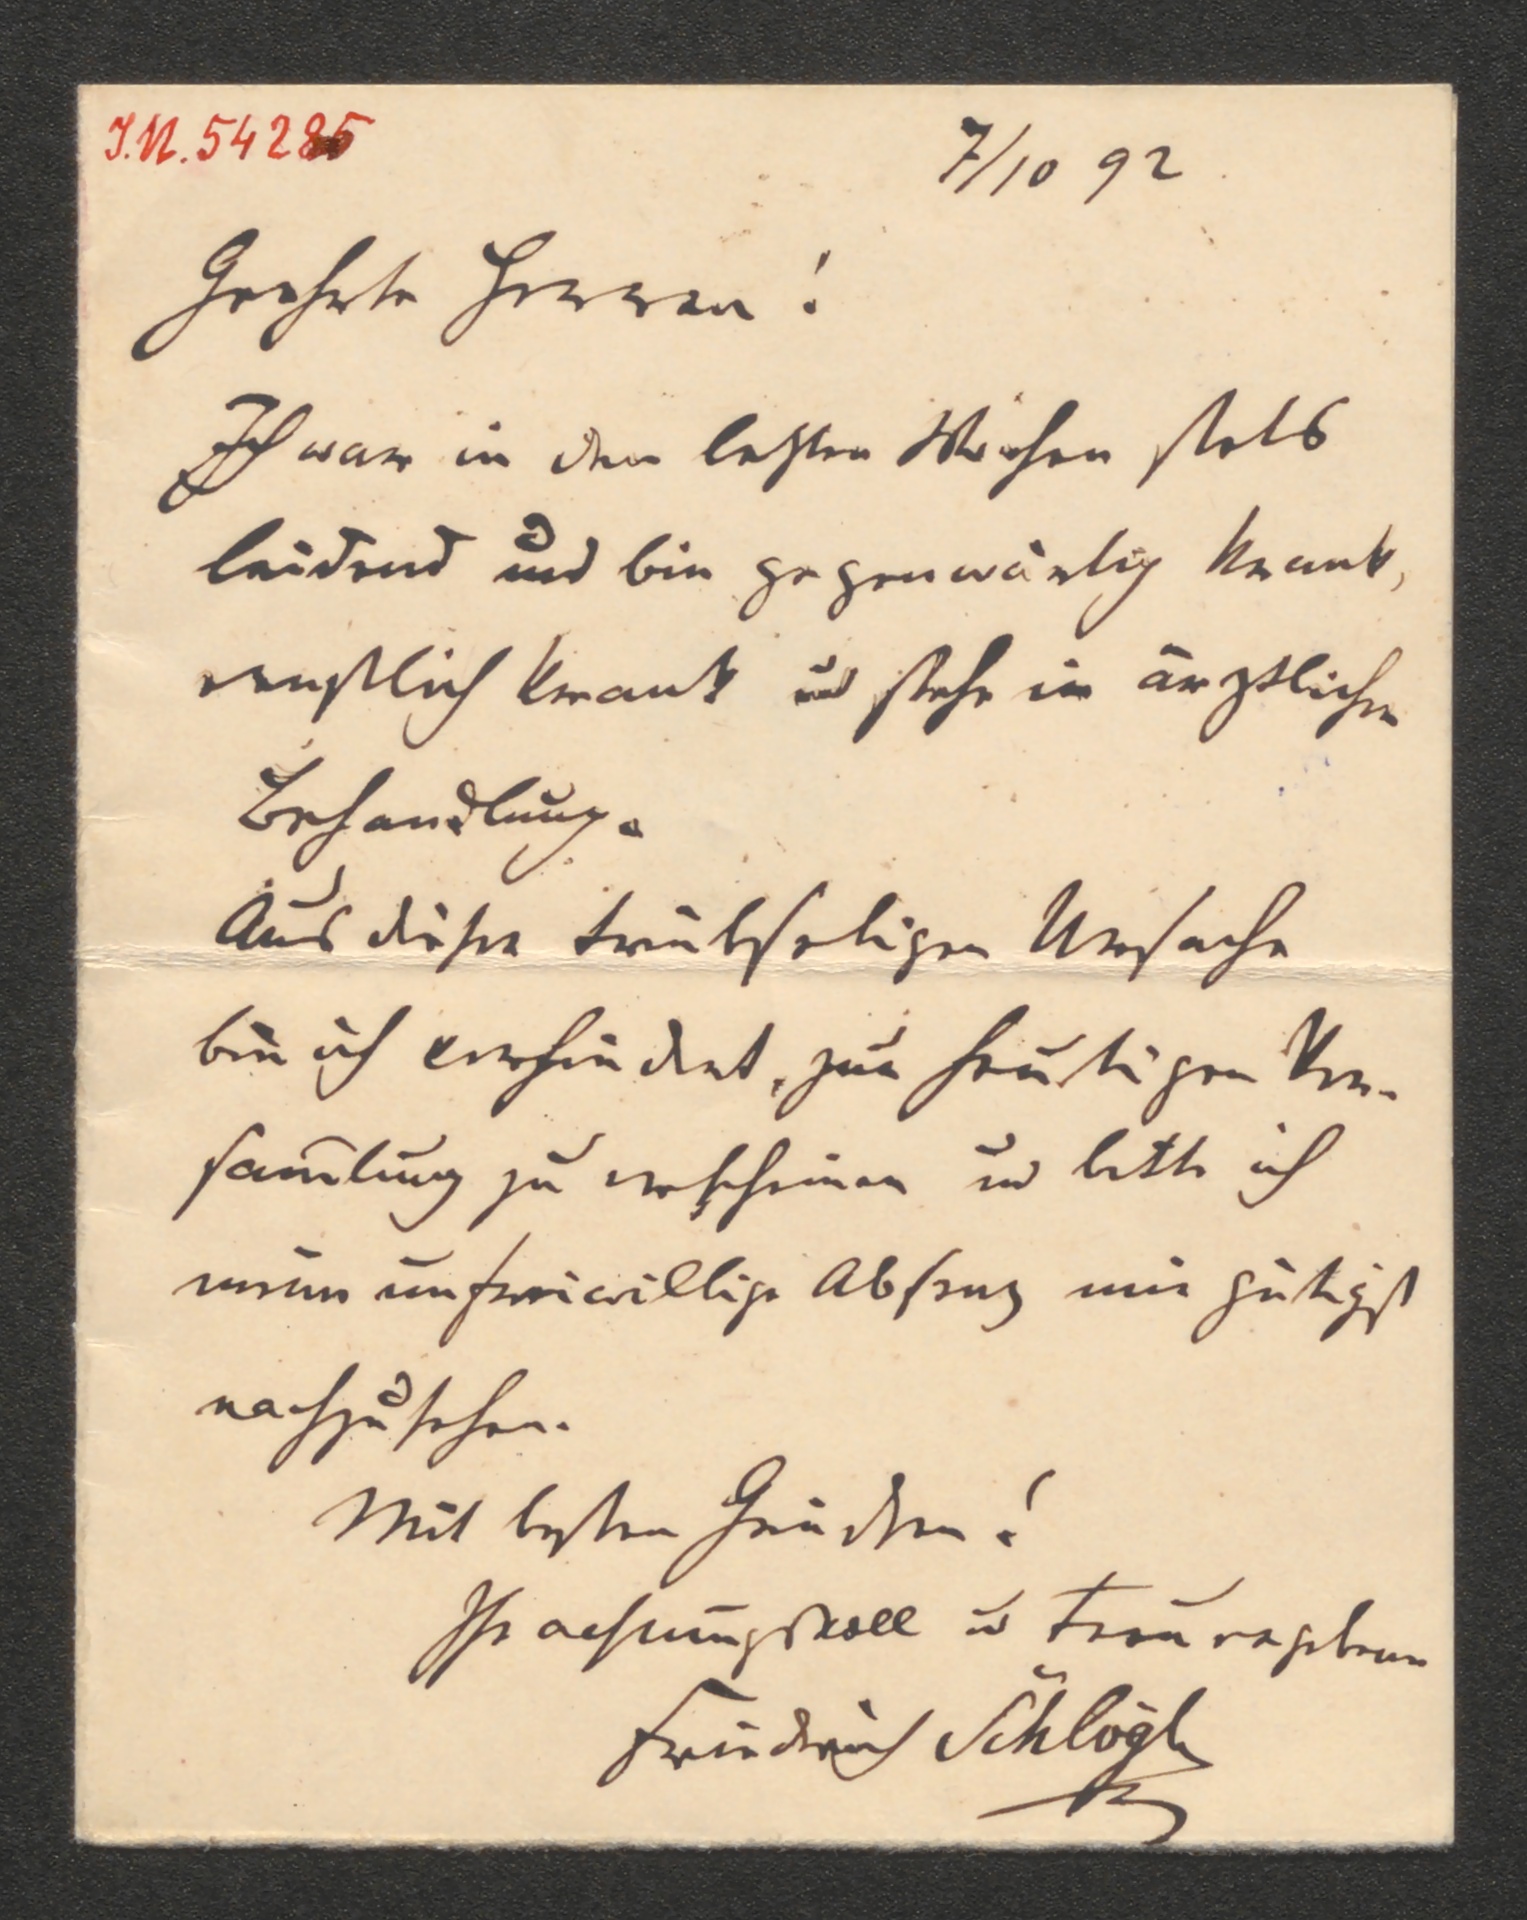 I.N. 54285
7/10 92
Geehrte Herren!
Ich war in den letzten Wochen stets
leidend und bin gegenwärtig krank,
ernstlich krank u stehe in ärztlicher
Behandlung.
Aus dieser trübseligen Ursache
bin ich verhindert, zur heutigen Ver-
sam̅lung zu erscheinen u bitte ich
meine unfreiwillige Absenz mir gütigst
nachzusehen.
Mit besten Grüßen!
Ihr achtungsvoll u treu ergebener
Friedrich Schlögl